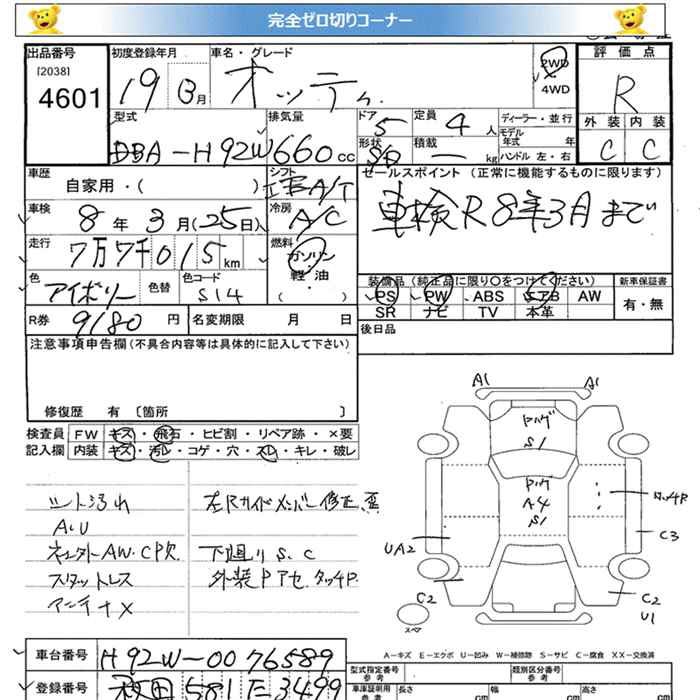 完全ゼロ切りコーナー
出品番号 初度登録年月 車名・グレード 評価点
[2038]
4601 19 年 月 オッティ 2WD 4WD R
型式 排気量 ドア 定員 ディーラー・並行 外装 内装
DBA-H92W 660cc 5 4人 モデル年式 年 C C
形状 積載 5D — kg ハンドル 左・右
車歴 シフト セールスポイント (正常に機能するものに限ります)
自家用・( ) A/T
車検 冷房 車検R8年3月まで
8年3月(25日) A/C
走行 燃料
7万7千015km ガソリン
軽油
( ・ )
色 色替 色コード 装備品 (純正品に限り〇をつけてください) 新車保証書
アイボリー S14 PS PW ABS エアB AW 有・無
SR ナビ TV 本革
R券 9180円 名変期限 月 日 後日品
注意事項申告欄(不具合内容等は具体的に記入して下さい)
修復歴 有 〔箇所 〕
検査員 FW キズ・飛石・ヒビ割・リペア跡・×要
記入欄 内装 キズ・汚レ・コゲ・穴・スレ・キレ・破レ
シート汚れ 左Rサイドメンバー修正、歪
AU
ホイルタイヤAW.CP欠 下廻りS.C
スタットレス 外装Pアセ.タッチP.
アンテナX
A1 A1
ドハゲ
S1
Pハゲ
A4
S1
タッチP
C3
UA2
C2 C2
U1
スペア
A-キズ E-エクボ U-凹み W-補修跡 S-サビ C-腐食 XX-交換済
車台番号 H92W-0076589
登録番号 秋田581 モ3499
型式指定番号 類別区分番号
車庫証明用参考 長さ cm 幅 cm 高さ cm